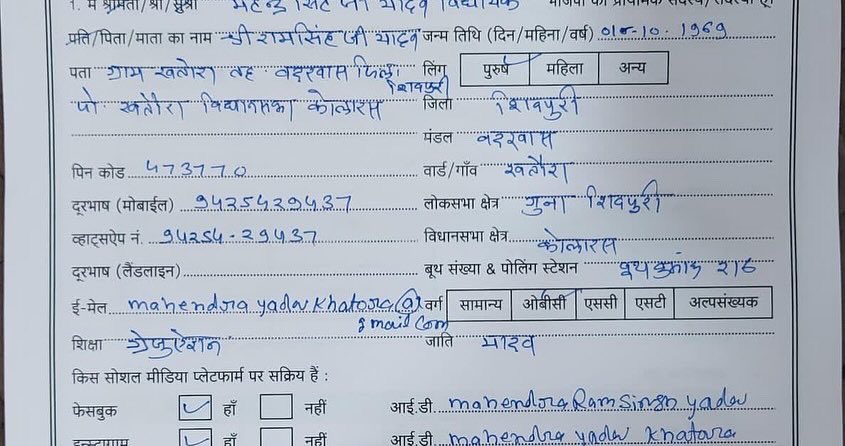 1. मैं श्रीमती/श्री/सुश्री महेन्द्र सिंह जी यादव विधायक भाजपा की प्राथमिक सदस्य/सदस्या
प्रति/पिता/माता का नाम श्री रामसिंह जी यादव जन्म तिथि (दिन/महिना/वर्ष) 01-10-1969
पता ग्राम खतौरा तह बदरवास जिला शिवपुरी लिंग पुरुष महिला अन्य
पो खतौरा विधानसभा कोलारस जिला शिवपुरी
मंडल बदरवास
पिन कोड 473770 वार्ड/गाँव खतौरा
दूरभाष (मोबाईल) 9425429437 लोकसभा क्षेत्र गुना शिवपुरी
व्हाट्सऐप नं. 94254-29437 विधानसभा क्षेत्र कोलारस
दूरभाष (लैंडलाइन) बूथ संख्या & पोलिंग स्टेशन बूथ क्रमांक
ई-मेल mahendra yadav khatora@ वर्ग सामान्य ओबीसी एससी एसटी अल्पसंख्यक
gmail com
शिक्षा ग्रेजुऐशन जाति यादव
किस सोशल मीडिया प्लेटफार्म पर सक्रिय हैं :
फेसबुक हाँ नहीं आई.डी mahendra Ram Singh yadav
इन्स्टाग्राम हाँ नहीं आई.डी mahendra yadav khatara